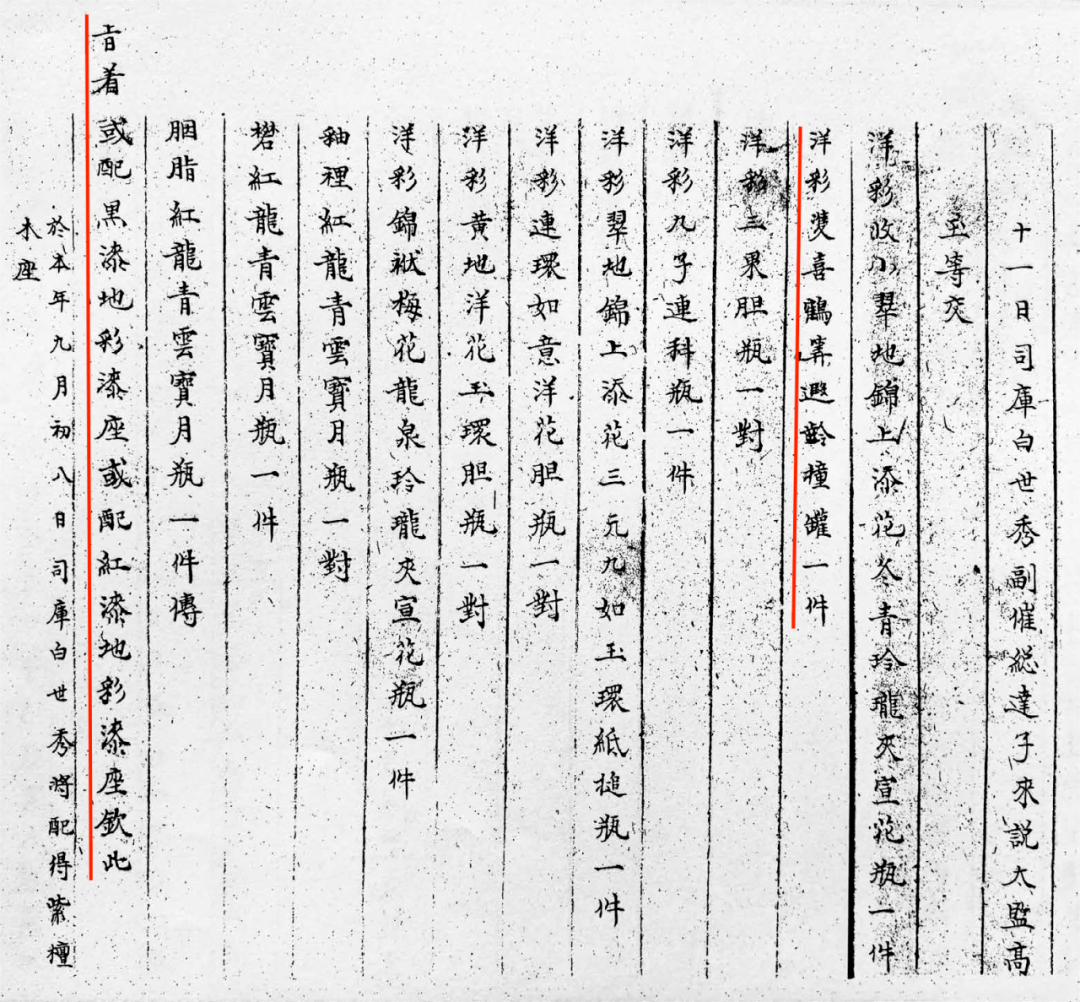 十一日司庫白世秀副催総達子來説太監高
玉等交
洋彩收小翠地錦上添花冬青玲瓏夾宣花瓶一件
洋彩䨇喜鶴筭遐齡撞罐一件
洋彩三果胆瓶一對
洋彩九子連科瓶一件
洋彩翠地錦上添花三元九如玉環紙搥瓶一件
洋彩連環如意洋花胆瓶一對
洋彩黃地洋花玉環胆瓶一對
洋彩錦袱梅花龍泉玲瓏夾宣花瓶一件
釉裡紅龍青雲寶月瓶一對
礬紅龍青雲寶月瓶一件
胭脂紅龍青雲寶月瓶一件傳
旨着或配黑漆地彩漆座或配紅漆地彩漆座欽此
於本年九月初八日司庫白世秀將配得紫檀
木座